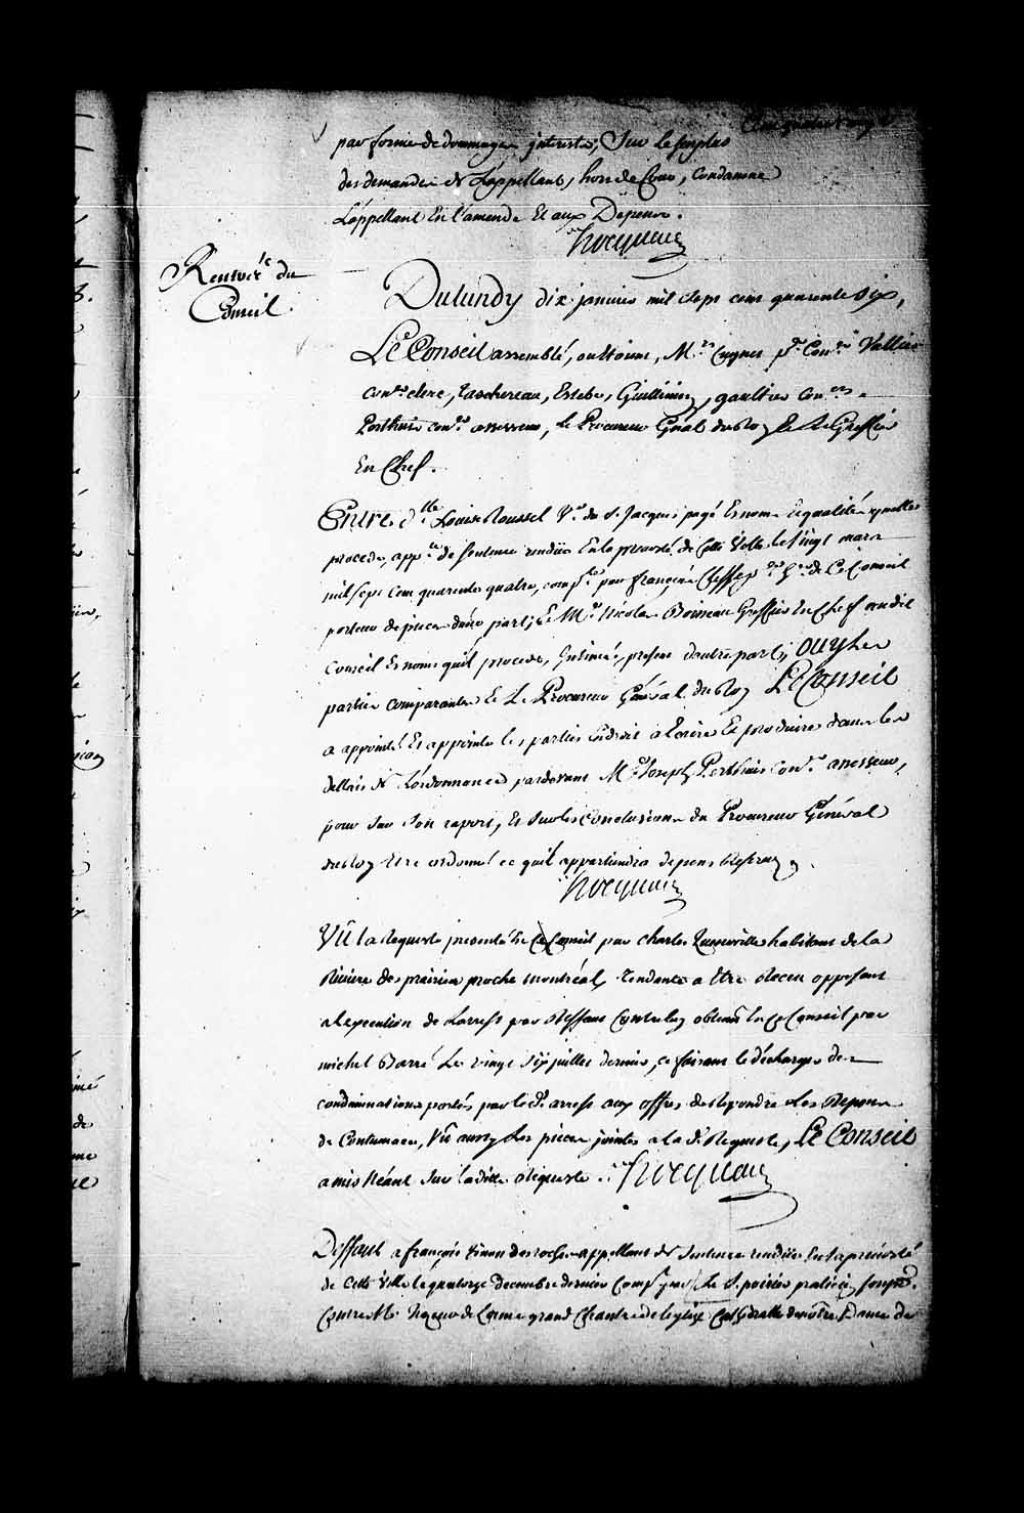 par forme de dommages interests; Sur le surplus
des demandes de L'appellant, hors de Cour, Condamne
L'appellant En l'amende Et aux Depens.
hocquart
Rentrée du
Conseil.
Du lundy dix janvier mil sept cent quarente six,
Le Conseil assemblé, ou Etoient, Mrs Cugnet pr Coner Vallier
coner clerc, Taschereau, Estebe, Guillimin, gaultier coners
Perthuis coner assesseur, le Procureur Gnal du Roy Et le Greffier
En Chef.
Entre dlle Louise Roussel Ve du S. Jacques pagé Es noms Et qualités quelle
procede, appte de sentence rendüe En la prevosté de Cette Ville le Vingt mars
mil sept cent quarente quatre, compte par françois Clesse pr hr de Ce Conseil
porteur de pieces d'une part; Et Mre Nicolas Boisseau Greffier En Chef audit
Conseil Es noms quil procede, Intimé, present d'autre part; Ouy les
parties comparantes Et Le Procureur Général du Roy Le Conseil
a appointé Et appointe les parties En droit a Ecrire Et produire dans les
dellais de L'ordonnance pardevant Me Joseph Perthuis Coner assesseur,
pour Sur Son raport, Et Sur les Conclusions du Procureur Général
du Roy Etre ordonné ce quil appartiendra depens Reservez.
hocquart
Vû la Requeste presentée En Ce Conseil par charles Turcville habitant de la
Riviere des prairies proche Montréal, tendante a Etre Receu opposant
a l'execution de L'arrest par deffaut Contre luy obtenu En Ce Conseil par
michel Barré Le vingt six juillet dernier, ce faisant le décharger des
condamnations portées par ledt arrest aux offres de Repondre les Depens
de Contumace, Vû aussy Les pieces jointes a la de Requeste, Le Conseil
a mis Néant Sur Ladite Requeste. hocquart
Deffaut a françois Vinon desroches appellant de Sentence rendüe En la prevosté
de Cette Ville le quatorze Decembre dernier Compt par Le S. poirier praticien
Contre Me de Lorme grand Chantre de l'eglise Cathedralle de nôtre Dame de